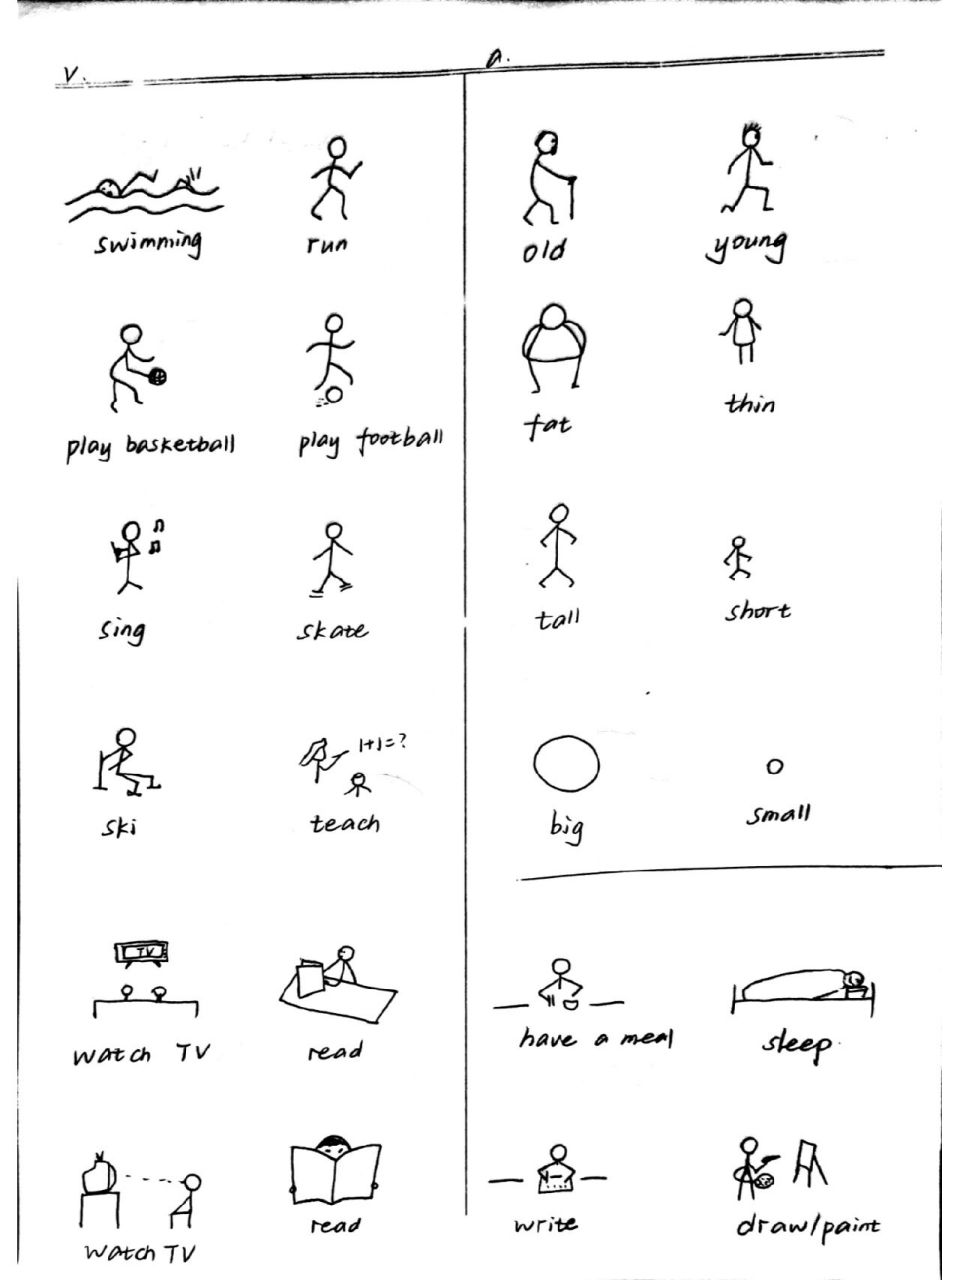 v.
a.
swimming
run
old
young
play basketball
play football
fat
thin
sing
skate
tall
short
1+1=?
ski
teach
big
small
TV
watch TV
read
have a meal
sleep
watch TV
read
write
draw/paint